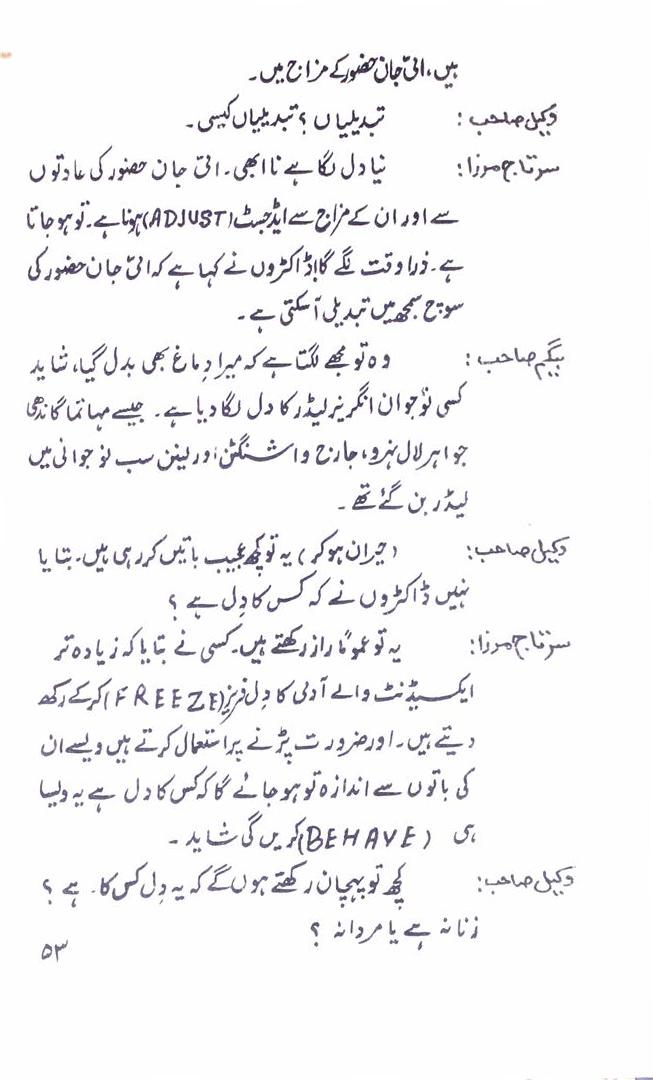 ہیں، امّی جان حضور کے مزاج میں۔
وکیل صاحب: تبدیلیاں؟ تبدیلیاں کیسی۔
سرتاج مرزا: نیا دل لگا ہے نا ابھی۔ امّی جان حضور کی عادتوں
سے اور ان کے مزاج سے ایڈجسٹ (ADJUST) ہونا ہے۔ تو ہو جاتا
ہے۔ ذرا وقت لگے گا! ڈاکٹروں نے کہا ہے کہ امّی جان حضور کی
سوچ سمجھ میں تبدیلی آ سکتی ہے۔
بیگم صاحب: وہ تو مجھے لگتا ہے کہ میرا دِماغ بھی بدل گیا، شاید
کسی نوجوان انگریز لیڈر کا دل لگا دیا ہے۔ جیسے مہاتما گاندھی
جواہر لال نہرو، جارج واشنگٹن اور لینن سب نوجوانی میں
لیڈر بن گئے تھے۔
وکیل صاحب: (حیران ہو کر) یہ تو کچھ عجیب باتیں کر رہی ہیں۔ بتایا
نہیں ڈاکٹروں نے کہ کس کا دِل ہے؟
سرتاج مرزا: یہ تو عموماً راز رکھتے ہیں۔ کسی نے بتایا کہ زیادہ تر
ایکسیڈنٹ والے آدمی کا دِل فریز (FREEZE) کر کے رکھ
دیتے ہیں۔ اور ضرورت پڑنے پر استعمال کرتے ہیں ویسے ان
کی باتوں سے اندازہ تو ہو جائے گا کہ کس کا دل ہے یہ ویسا
ہی (BEHAVE) کریں گی شاید۔
وکیل صاحب: کچھ تو پہچان رکھتے ہوں گے کہ یہ دِل کس کا۔ ہے؟
زنانہ ہے یا مردانہ؟
۵۳